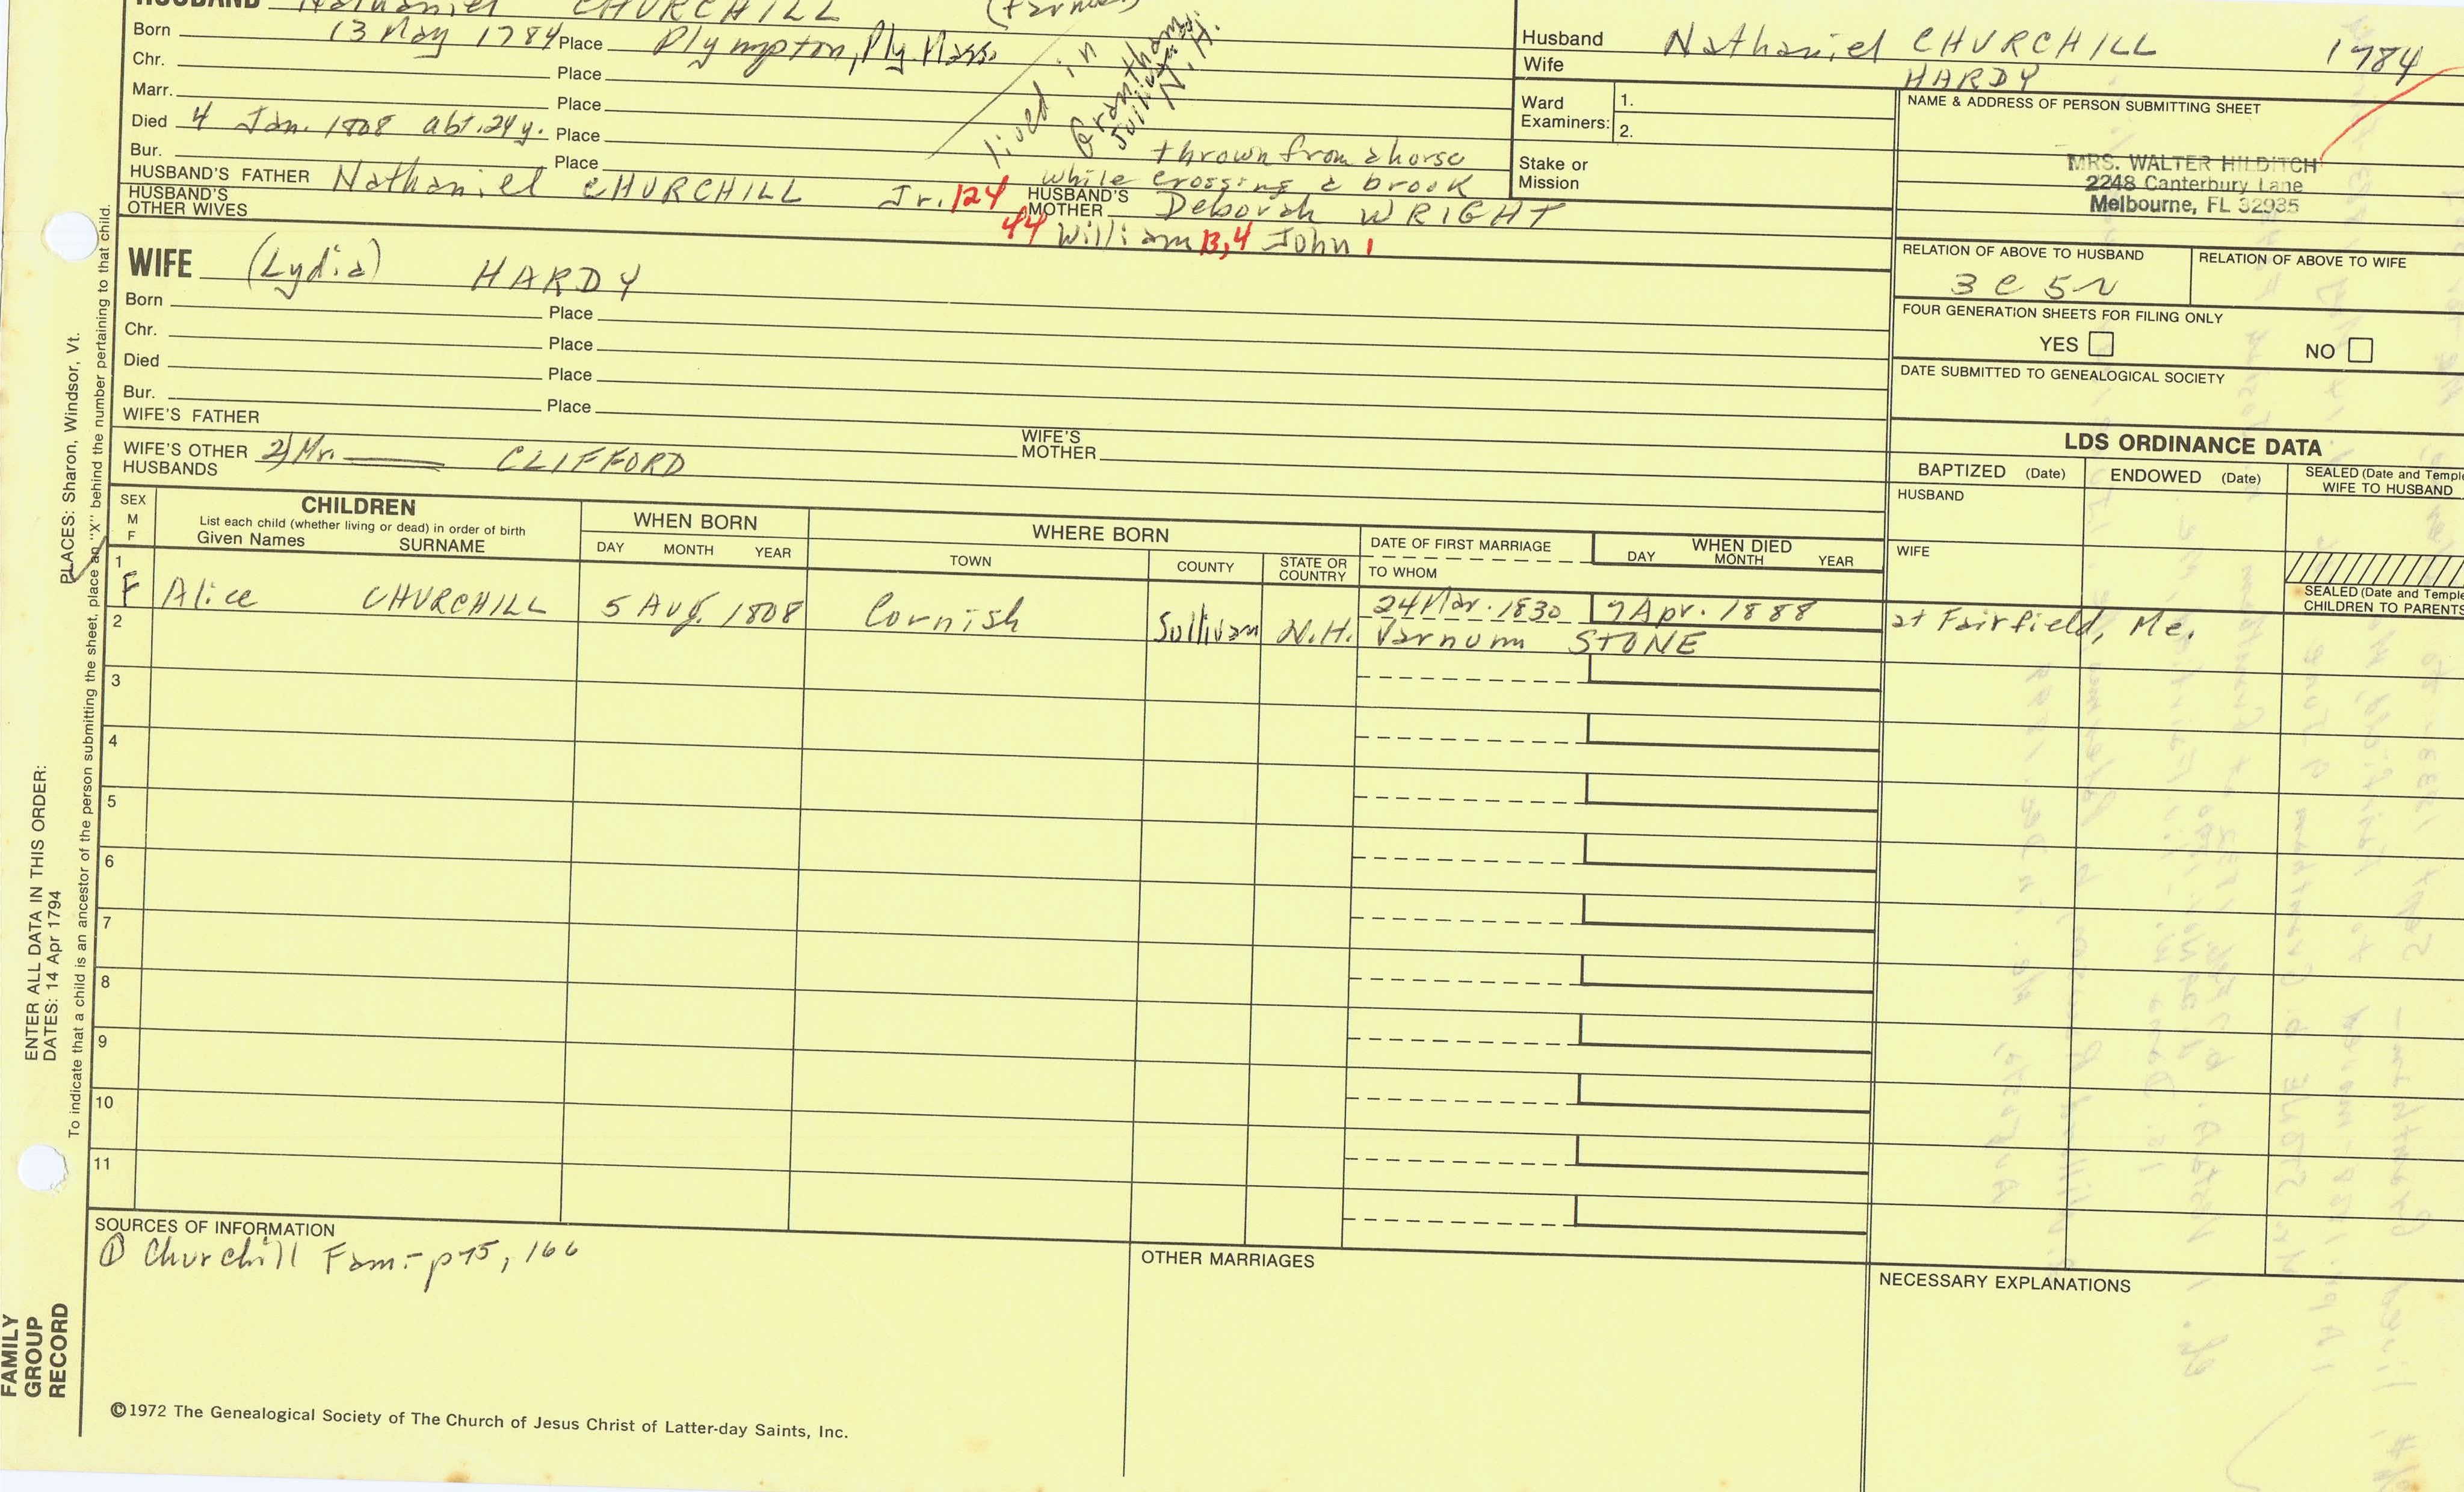 HUSBAND Nathaniel CHURCHILL (Farmer)
Born 13 May 1784 Place Plympton, Ply. Mass.
Chr. Place
Marr. Place
Died 4 Jan. 1808 abt. 24 y. Place
Bur. Place
lived in
Grantham,
Sullivan
N.H.
thrown from a horse
while crossing a brook
HUSBAND'S FATHER Nathaniel CHURCHILL Jr. 124
HUSBAND'S MOTHER Deborah WRIGHT
HUSBAND'S OTHER WIVES
44 William 13,4 John 1
WIFE (Lydia) HARDY
Born Place
Chr. Place
Died Place
Bur. Place
WIFE'S FATHER
WIFE'S MOTHER
WIFE'S OTHER HUSBANDS 2) Mr. CLIFFORD
Husband Nathaniel CHURCHILL 1784
Wife HARDY
Ward Examiners: 1.
2.
Stake or Mission
NAME & ADDRESS OF PERSON SUBMITTING SHEET
MRS. WALTER HILDITCH
2248 Canterbury Lane
Melbourne, FL 32935
RELATION OF ABOVE TO HUSBAND
3 C 5 r
RELATION OF ABOVE TO WIFE
FOUR GENERATION SHEETS FOR FILING ONLY
YES NO
DATE SUBMITTED TO GENEALOGICAL SOCIETY
LDS ORDINANCE DATA
BAPTIZED (Date) ENDOWED (Date) SEALED (Date and Temple
WIFE TO HUSBAND
HUSBAND
WIFE
SEALED (Date and Temple
CHILDREN TO PARENTS
SEX
M
F
CHILDREN
List each child (whether living or dead) in order of birth
Given Names SURNAME
WHEN BORN
DAY MONTH YEAR
WHERE BORN
TOWN COUNTY STATE OR COUNTRY
DATE OF FIRST MARRIAGE
TO WHOM
WHEN DIED
DAY MONTH YEAR
1
F Alice CHURCHILL 5 Aug. 1808 Cornish Sullivan N.H. 24 Mar. 1830 7 Apr. 1888 at Fairfield, Me.
Varnum STONE
2
3
4
5
6
7
8
9
10
11
SOURCES OF INFORMATION
① Churchill Fam.- p75, 166
OTHER MARRIAGES
NECESSARY EXPLANATIONS
©1972 The Genealogical Society of The Church of Jesus Christ of Latter-day Saints, Inc.
FAMILY
GROUP
RECORD
ENTER ALL DATA IN THIS ORDER:
DATES: 14 Apr 1794
PLACES: Sharon, Windsor, Vt.
To indicate that a child is an ancestor of the person submitting the sheet, place an "X" behind the number pertaining to that child.